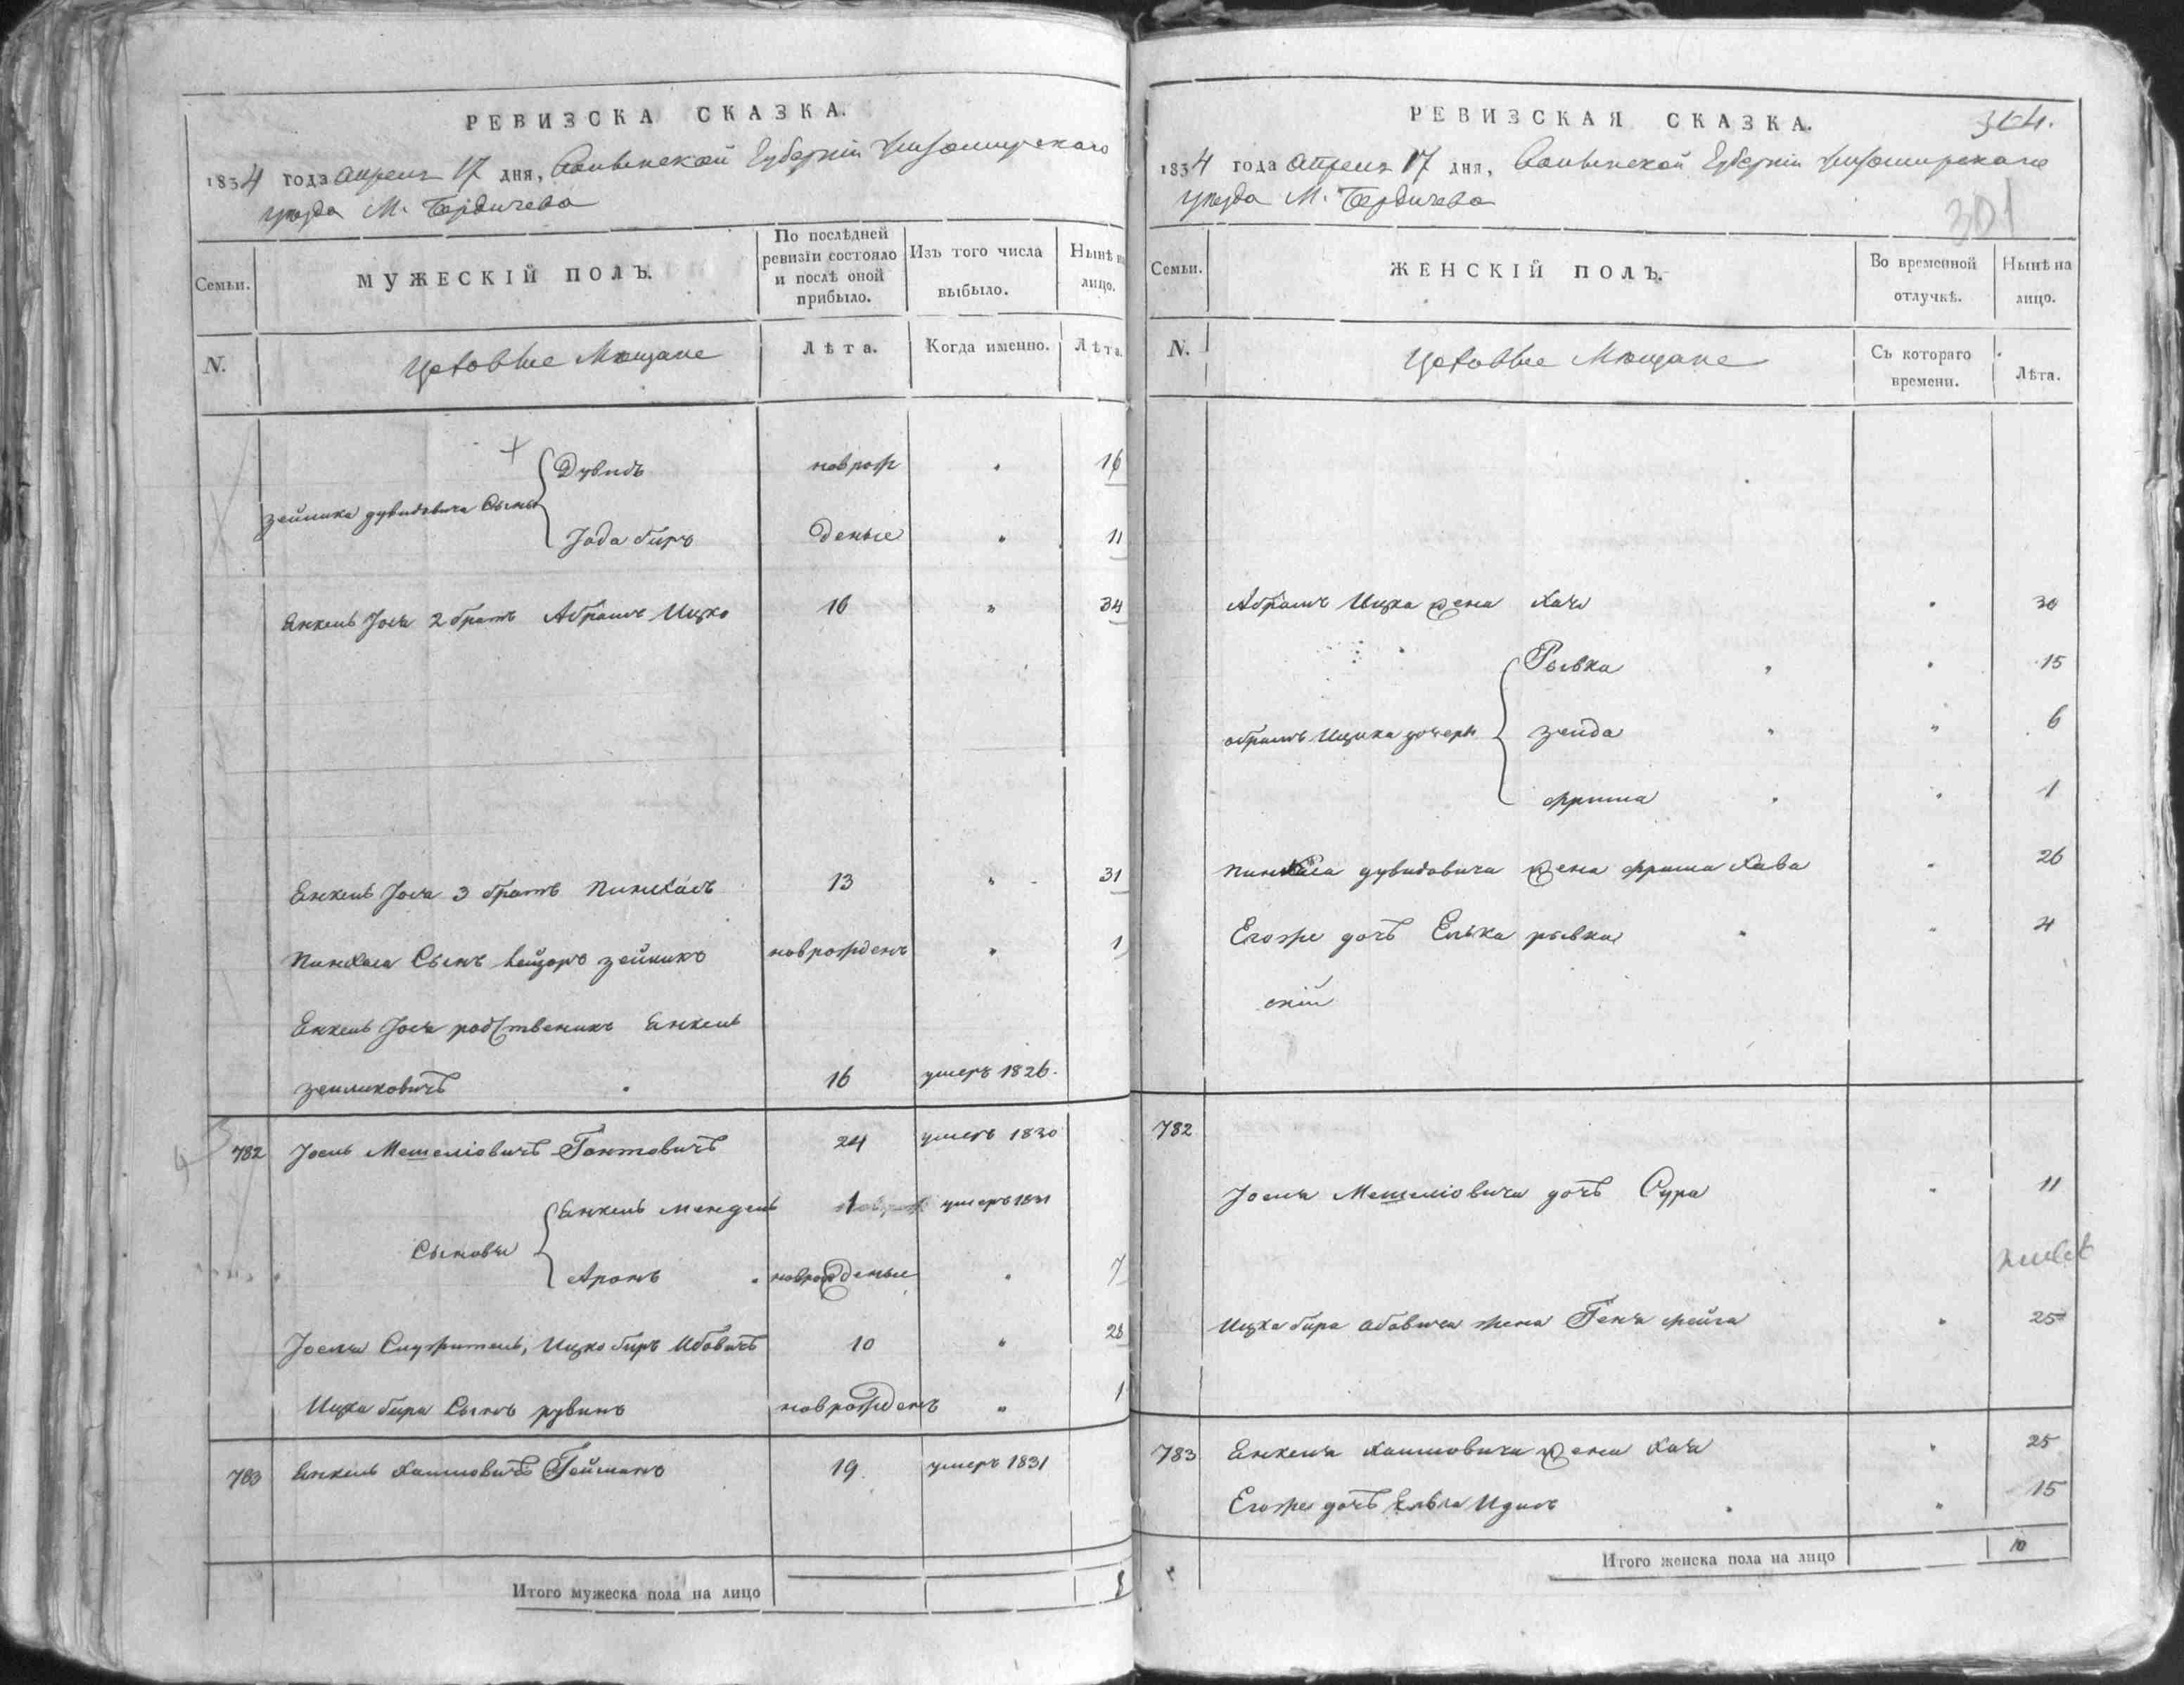 РЕВИЗСКА СКАЗКА.
1834 года Апреля 17 дня, Волынской Губерніи Житомирскаго
уезда М. Бердичева
Семьи.
МУЖЕСКІЙ ПОЛЪ.
По послѣдней ревизіи состояло и послѣ оной прибыло.
Изъ того числа выбыло.
Нынѣ на лицо.
N.
Цеховые Мещане
Лѣта.
Когда именно.
Лѣта.
Дувидъ новрож 16
Зейлика дувидовича Сыны
Іода биръ деные 11
Енкель Іося 2 братъ Абрамъ Ицко 16 34
Енкель Іося 3 братъ Пинхасъ 13 31
Пинхаса Сынъ Лейзоръ зейликъ новрожденъ 1
Енкель Іося родственикъ Енкель
зейликовичъ 16 умеръ 1826.
782 Іось Мешеліовичъ Гонтовичъ 24 умеръ 1830
Енкель мендель 1 умеръ 1831
Сыновья
Аронъ новрожденые 7
Іоселя Служитель, Ицко биръ Абовичъ 10 28
Ицка бира Сынъ рувинъ новрожденъ 1
783 Енкель Хаимовичъ Гойманъ 19 умеръ 1831
Итого мужеска пола на лицо 8
РЕВИЗСКАЯ СКАЗКА.
304.
1834 года Апреля 17 дня, Волынской Губерніи Житомирскаго
уезда М. Бердичева
301
Семьи.
ЖЕНСКІЙ ПОЛЪ.
Во временной отлучкѣ.
Нынѣ на лицо.
N.
Цеховые Мещане
Съ котораго времени.
Лѣта.
Абрамъ Ицка жена Хая 30
Рывка 15
абрамъ Ицика дочери зейда 6
фрима 1
Пинхаса дувидовича жена фрима Хава 26
Егоже дочъ Елька рывка 4
782
Іоселя Мешеліовича дочъ Сура 11
Ицка бира Абовича жена Геня фейга 25
783 Енкеля Хаимовича жена Хая 25
Егоже дочъ 15
Итого женска пола на лицо 10